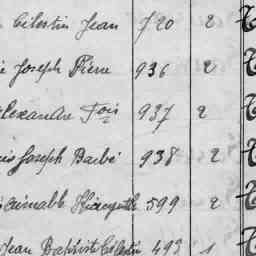 Célestin Jean 720 2
Joseph Pierre 936 2
Alexandre Fois 937 2
Joseph Barbé 938 2
Aimable Hiacynthe 599 2
Jean Baptiste Célestin 493 1